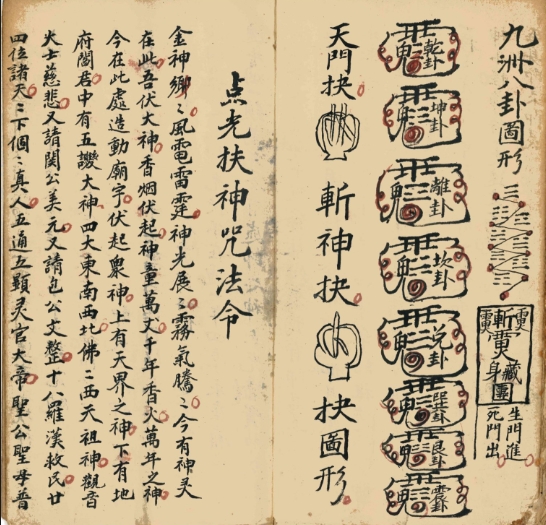 九洲八卦圖形
斬
身藏
生門進
死門出
乾卦
坤卦
離卦
坎卦
兌卦
巽卦
艮卦
震卦
天門抉
斬神抉
抉圖形
点光扶神咒法令
金神鄉〻風電雷霆神光展〻霧氣騰〻今有神灵
在此吾伏大神香烟伏起神童萬丈千年香火萬年之神
今在此處造動廟宇伏起衆神上有天界之神下有地
府閻君中有五讖大神四大東南西北佛〻西天祖神觀音
大士慈悲又請関公美元又請包公文整十八羅漢救民廿
四位諸天〻下個〻真人五通五顕灵官大帝聖公聖母普